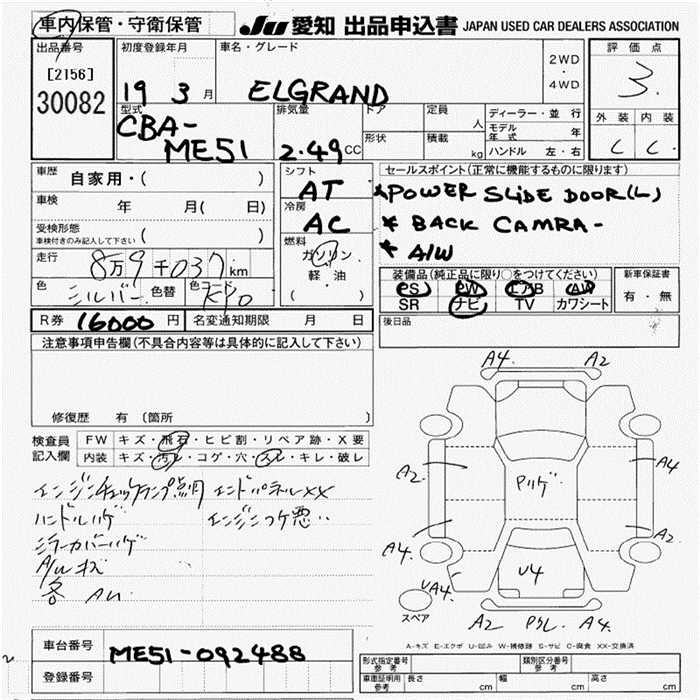 車内保管・守衛保管
JU 愛知 出品申込書 JAPAN USED CAR DEALERS ASSOCIATION
出品番号
[2156]
30082
初度登録年月
19 3 月
車名・グレード
ELGRAND
2WD
・
4WD
評価点
3.
外装 内装
C C.
型式
CBA-
ME51
排気量
2.49 CC
ドア
形状
定員 人
積載 kg
ディーラー・並行
モデル年式 年
ハンドル 左・右
車歴 自家用・( )
車検 年 月( 日)
受検形態
車検付きのみ記入して下さい ( )
走行
8万9千037km
色 シルバー 色替 色No
シフト
AT
冷房
AC
燃料
ガソリン
軽油
( )
セールスポイント(正常に機能するものに限ります)
*POWER SLIDE DOOR(L)
* BACK CAMRA-
* A/W
装備品(純正品に限り○をつけてください)
PS PW エアB AW
SR ナビ TV カワシート
新車保証書
有・無
R券 16000 円 名変通知期限 月 日
後日品
注意事項申告欄(不具合内容等は具体的に記入して下さい)
修復歴 有 〔箇所 〕
検査員
記入欄
FW キズ・飛石・ヒビ割・リペア跡・X要
内装 キズ・汚レ・コゲ・穴・スレ・キレ・破レ
エンジンチェックランプ点灯 エンドパネルXX
ハンドルハゲ エンジンコケ悪
ミラーカバーハゲ
A/Wキズ
各 AU
A4. A2
A2 A4
Pハゲ
A4. A2
U4
UA4.
スペア
A2 PクレA4.
A-キズ E-エクボ U-凹み W-補修跡 S-サビ C-腐食 XX-交換済
車台番号 ME51-092488
登録番号
形式指定番号
参考
類別区分番号
参考
車庫証明用
参考
長さ cm 幅 cm 高さ cm